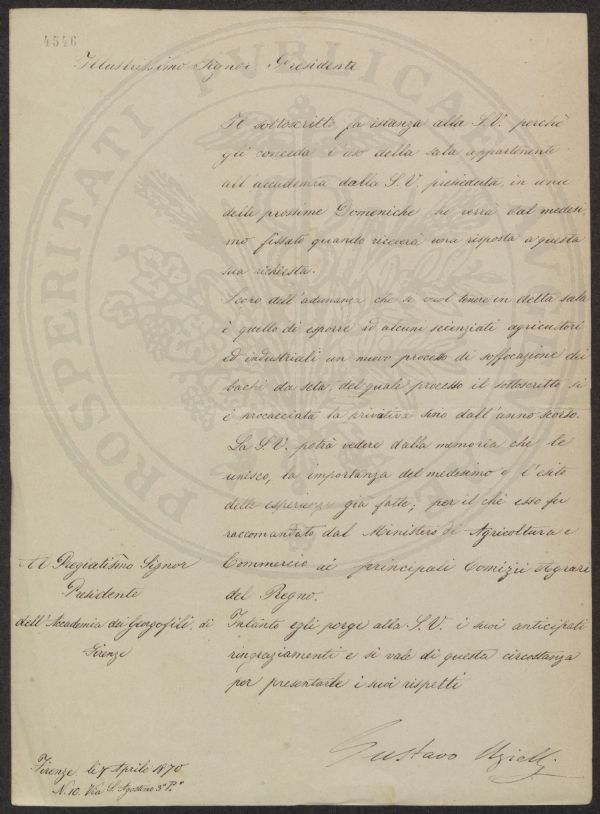 4546
Illustrissimo Signor Presidente
Il sottoscritto fa istanza alla S.V. perchè
gli conceda l'uso della sala appartenente
all'accademia dalla S.V. presieduta, in una
delle prossime Domeniche, se verrà dal medesi-
mo fissato quando riceverà una risposta a questa
sua richiesta.
Scopo dell'adunanza che si vuol tenere in detta sala
è quello di esporre ad alcuni scienziati agricultori
ed industriali un nuovo processo di soffocazione dei
bachi da seta, del quale processo il sottoscritto si
è procacciata la privativa sino dall'anno scorso.
La S.V. potrà vedere dalla memoria che le
unisco, la importanza del medesimo e l'esito
delle esperienze già fatte; per il chè esso fu
raccomandato dal Ministero di Agricoltura e
Commercio ai principali Comizii Agrari
del Regno.
Intanto egli porge alla S.V. i suoi anticipati
ringraziamenti e si vale di questa circostanza
per presentarle i suoi rispetti
Gustavo Uzielli
Al Pregiatissimo Signor
Presidente
dell'Accademia dei Georgofili, di
Firenze
Firenze li 7 Aprile 1870
N. 10. Via S. Agostino 3° P.°
PROSPERITATI PUBLICAE